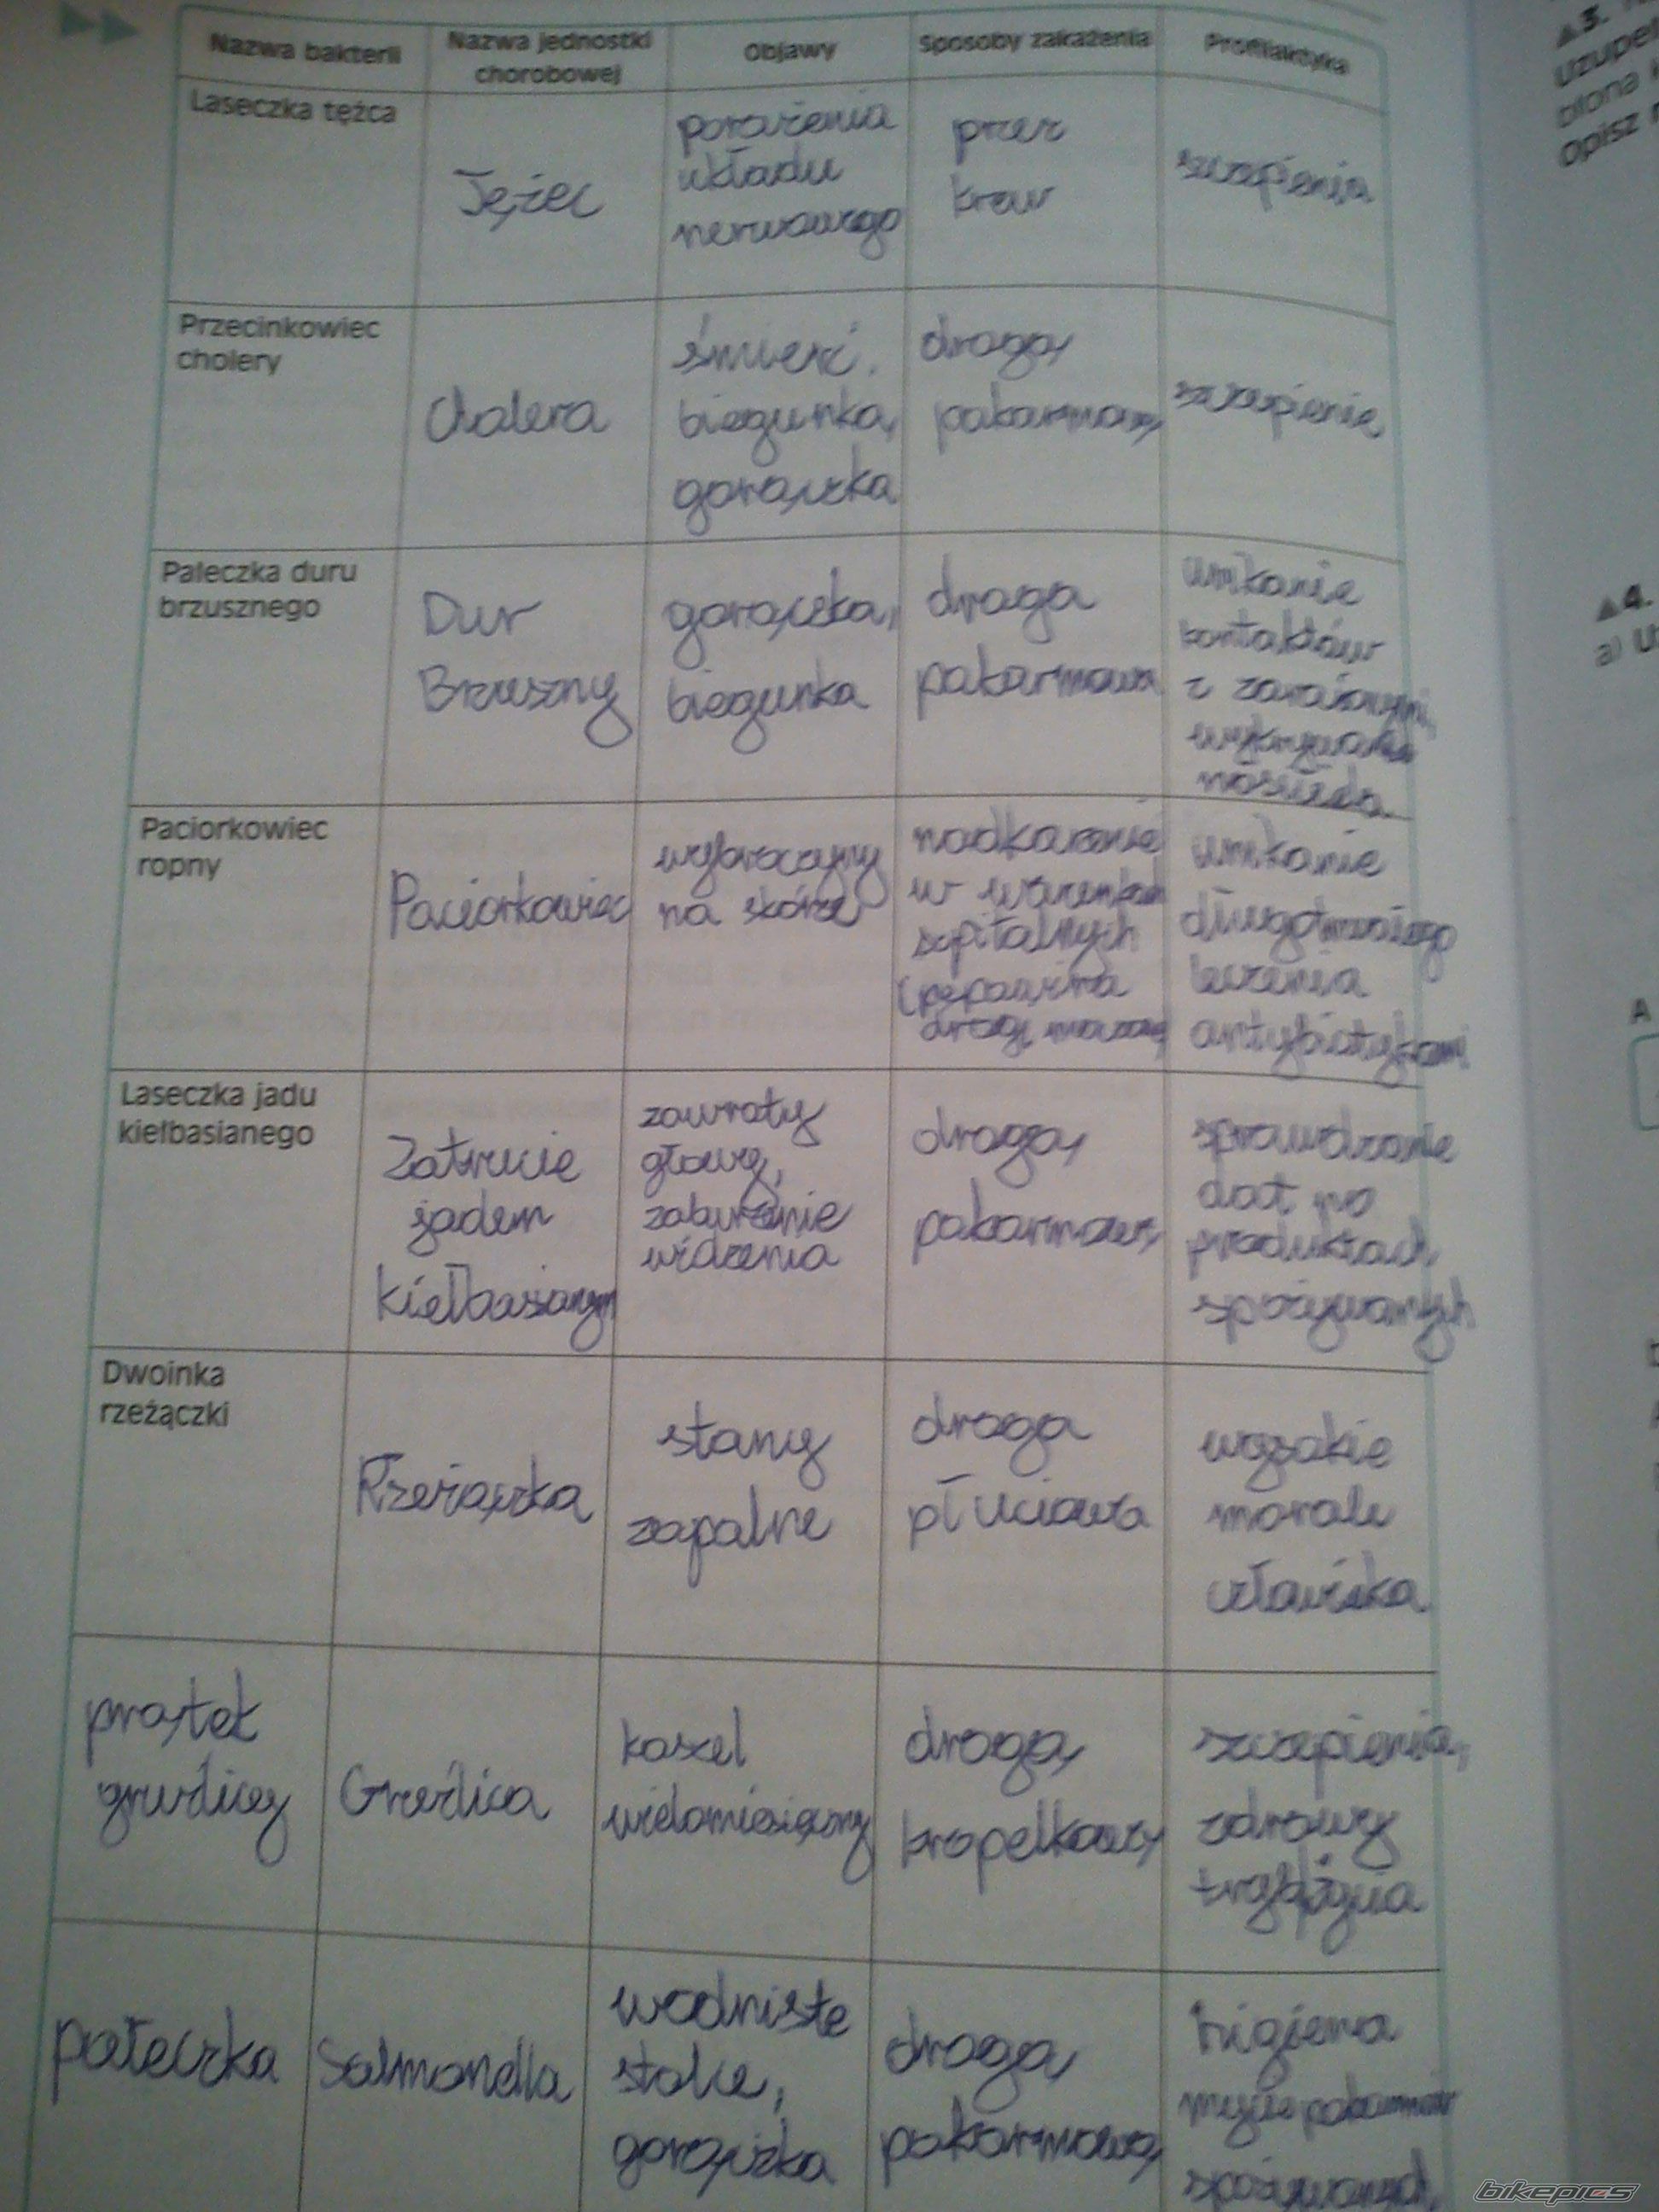 Nazwa bakterii
Nazwa jednostki
chorobowej
Objawy
Sposoby zakażenia
Profilaktyka
Laseczka tężca
Tężec
porażenia
układu
nerwowego
przez
krew
szczepienia
Przecinkowiec
cholery
Cholera
śmierć.
biegunka,
gorączka
drogą
pokarmową
szczepienie
Pałeczka duru
brzusznego
Dur
Brzuszny
gorączka,
biegunka
droga
pokarmowa
unikanie
kontaktów
z zarażonymi,
wykrywanie
Paciorkowiec
ropny
Paciorkowiec
wybroczyny
na skórze
nadkażenie
w warunkach
szpitalnych
unikanie
długotrwałego
leczenia
antybiotykami
Laseczka jadu
kiełbasianego
Zatrucie
jadem
kiełbasianym
zawroty
głowy,
zaburzenie
widzenia
drogą
pokarmową
sprawdzanie
dat na
produktach
spożywanych
Dwoinka
rzeżączki
Rzeżączka
stany
zapalne
droga
płciowa
wysokie
morale
człowieka
prątek
gruźlicy
Gruźlica
kaszel
wielomiesięczny
drogą
kropelkową
szczepienia,
zdrowy
tryb życia
pałeczka
Salmonella
wodniste
stolce,
gorączka
drogą
pokarmową
higiena
mycie pokarmów
spożywanych
▲3.
uzupeł
błona k
Opisz
▲4.
a) U
A
bikepics